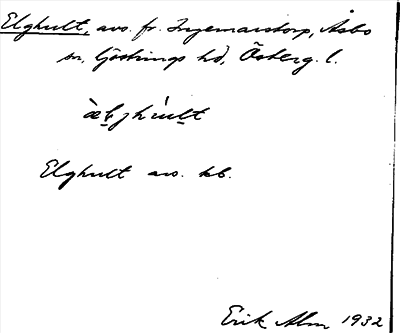 Elghult, avs. fr. Ingemarstorp, Åsbo
sn, Göstrings hd, Österg. l.
Elghult avs. kb.
Erik Alm 1932